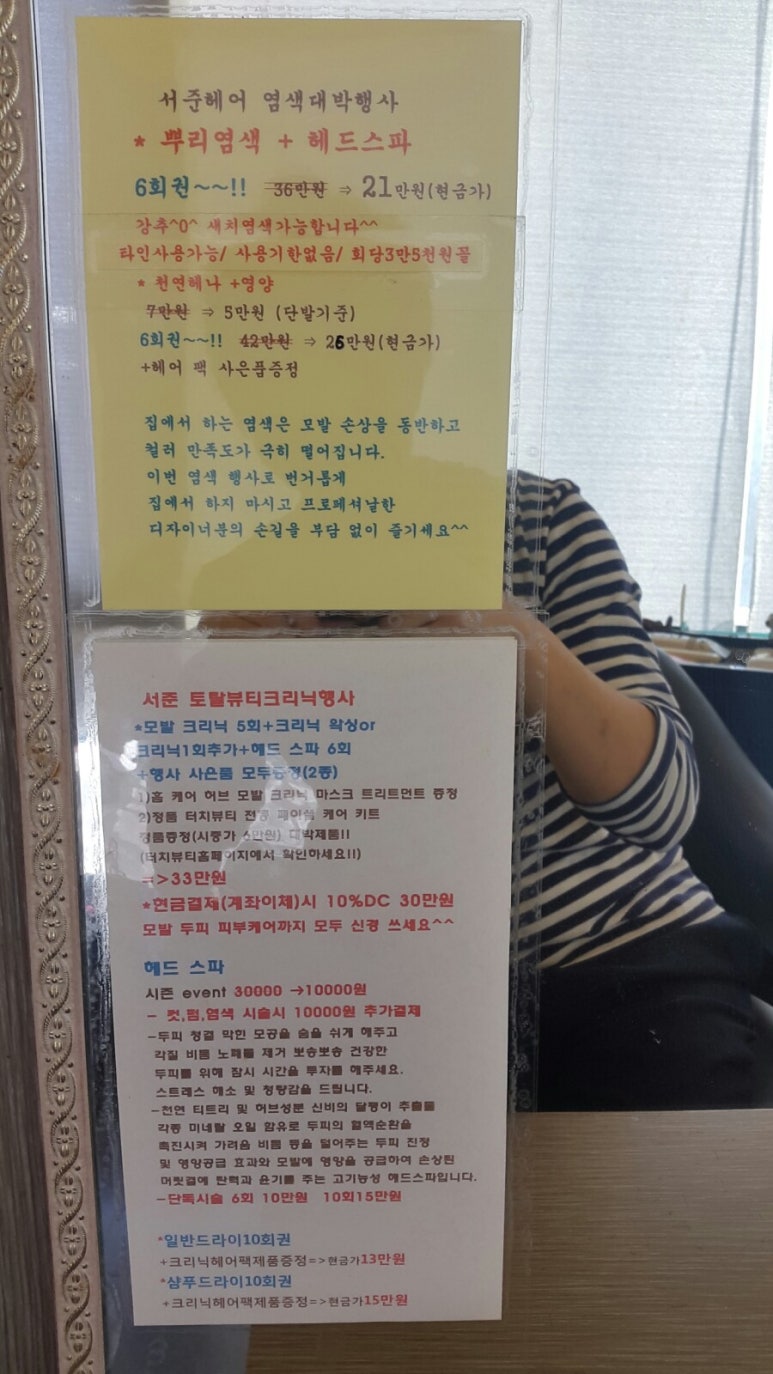 서준헤어 염색대박행사
* 뿌리염색 + 헤드스파
6회권~~!! 36만원 ⇒ 21만원(현금가)
강추^0^ 새치염색가능합니다^^
타인사용가능/ 사용기한없음/ 회당3만5천원꼴
* 천연헤나 +영양
7만원 ⇒ 5만원 (단발기준)
6회권~~!! 42만원 ⇒ 26만원(현금가)
+헤어 팩 사은품증정
집에서 하는 염색은 모발 손상을 동반하고
컬러 만족도가 극히 떨어집니다.
이번 염색 행사로 번거롭게
집에서 하지 마시고 프로페셔날한
디자이너분의 손길을 부담 없이 즐기세요^^
서준 토탈뷰티크리닉행사
*모발 크리닉 5회+크리닉 왁싱or
크리닉1회추가+헤드 스파 6회
+행사 사은품 모두증정(2종)
1)홈 케어 허브 모발 크리닉 마스크 트리트먼트 증정
2)정품 터치뷰티 전동 페이셜 케어 키트
정품증정(시중가 6만원) 대박제품!!
(터치뷰티홈페이지에서 확인하세요!!)
=>33만원
*현금결제(계좌이체)시 10%DC 30만원
모발 두피 피부케어까지 모두 신경 쓰세요^^
헤드 스파
시즌 event 30000 →10000원
- 컷,펌,염색 시술시 10000원 추가결제
-두피 청결 막힌 모공을 숨을 쉬게 해주고
각질 비듬 노폐를 제거 뽀송뽀송 건강한
두피를 위해 잠시 시간을 투자를 해주세요.
스트레스 해소 및 청량감을 드립니다.
-천연 티트리 및 허브성분 신비의 달팽이 추출물
각종 미네랄 오일 함유로 두피의 혈액순환을
촉진시켜 가려움 비듬 등을 덜어주는 두피 진정
및 영양공급 효과와 모발에 영양을 공급하여 손상된
머릿결에 탄력과 윤기를 주는 고기능성 헤드스파입니다.
-단독시술 6회 10만원 10회15만원
*일반드라이10회권
+크리닉헤어팩제품증정=>현금가13만원
*샴푸드라이10회권
+크리닉헤어팩제품증정=>현금가15만원